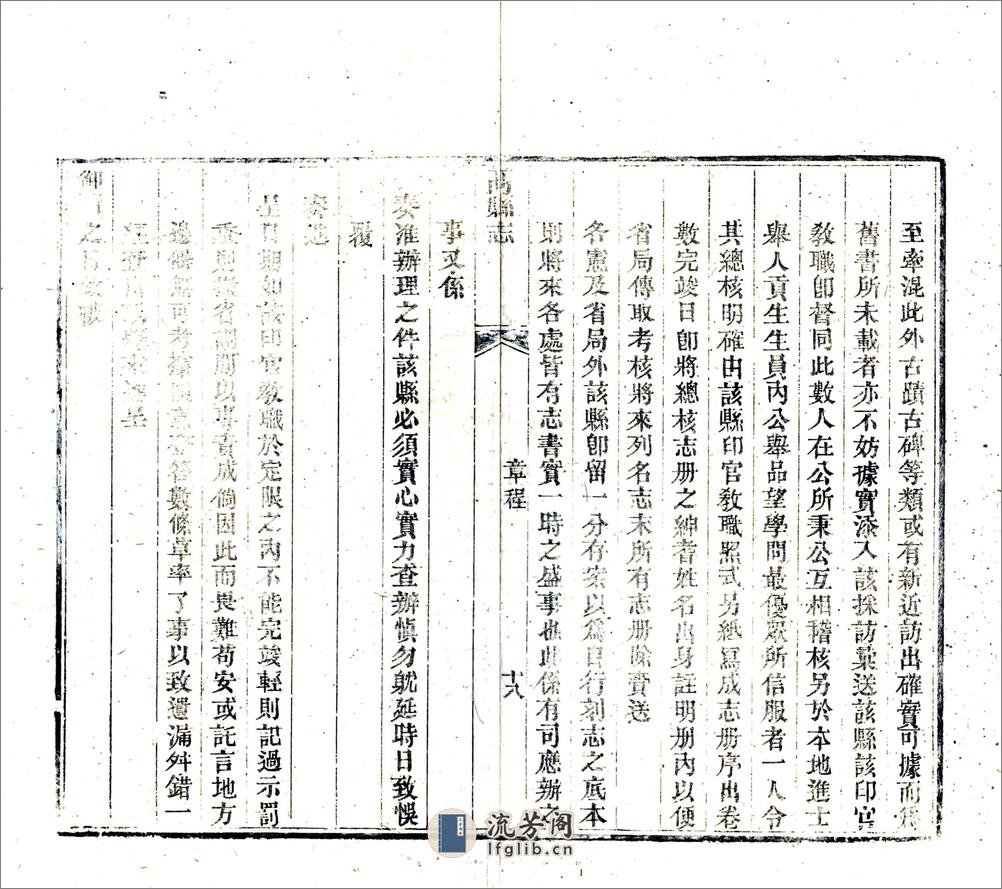 至牽混此外古蹟古碑等類或有新近訪出確實可據而爲
舊書所未載者亦不妨據實添入該採訪彙送該縣該印官
敎職卽督同此數人在公所秉公互相稽核另於本地進士
舉人貢生生員內公舉品望學問最優眾所信服者一人令
其總核明確由該縣印官敎職照式另紙寫成志册序出卷
數完竣日卽將總核志册之紳耆姓名出身註明册內以便
省局傳取考核將來列名志末所有志册除賫送
各憲及省局外該縣卽留一分有案以爲日行刻志之底本
則將來各處皆有志書實一時之盛事也此係有司應辦之
縣志
章程
十八
事又係
奏准辦理之件該縣必須實心實力查辦愼勿躭延時日致悞
覆
奏進
呈日期如該印官敎職於定限之內不能完竣輕則記過示罰
重則 省 以專責成倘因此而畏難苟安或託言地方
可考 數條草率了事以致遺漏舛錯一
經
呈
御
之
流芳阁
lfglib.cn